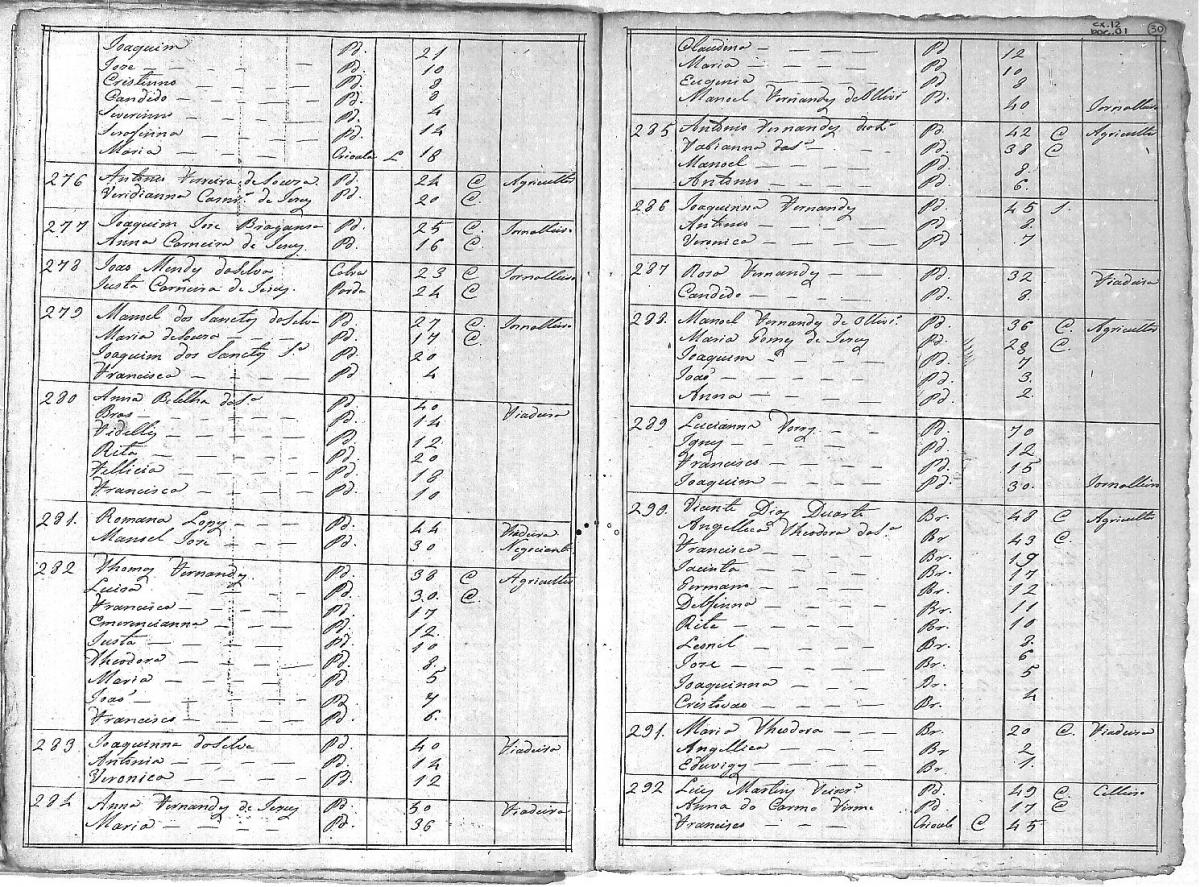 CX.12
DOC.01
30
Joaquim Pd. 21
Joze Pd. 10
Cristinno Pd. 8
Candido Pd. 8
Severinno Pd. 4
Serafinna Pd. 14
Maria Crioula 18
276 Antonio Ferreira de Souza Pd. 24 C. Agricultor
Veridianna Carnr.ª de Jesus Pd. 20 C.
277 Joaquim Joze Bragansa Pd. 25 C. Jornalleiro
Anna Carneira de Jesus Pd. 16 C
278 Joao Mendz da Silva Cabra 23 C Jornalleiro
Justa Carneira de Jesus Parda 24 C
279 Manoel dos Sanctos da Silva Pd. 27 C. Jornalleiro
Maria de Souza Pd. 17 C.
Joaquim dos Sanctos S.ª Pd. 20
Francisca Pd. 4
280 Anna da S.ª Pd. 40 Fiadeira
Bras Pd. 14
Fidellis Pd. 12
Rita Pd. 20
Fellicia Pd. 18
Francisca Pd. 10
281. Romana Lopz Pd. 44 Fiadeira
Manoel Joze Pd. 30 Negociante
282 Thomas Fernandz Pd. 38 C Agricultor
Luisa Pd. 30. C.
Francisca Pd. 17
Emerencianna Pd. 12.
Justa Pd. 10
Theodora Pd. 8.
Maria Pd. 5
João Pd. 7
Francisco Pd. 6.
283 Joaquinna da Silva Pd. 40 Fiadeira
Antonia Pd. 14
Veronica Pd. 12
284 Anna Fernandz de Jesus Pd. 50 Fiadeira
Maria Pd. 36
Claudina Pd 12
Maria Pd 10
Eugenia Pd 8
Manoel Fernandz Pd. 40 Jornalleiro
285 Antonio Fernandz Pd. 42 C Agricultor
Fabianna da S.ª Pd. 38 C
Manoel Pd 8
Antonio Pd 6.
286 Joaquinna Fernandz Pd 45 S.
Antonio Pd 8.
Veronica Pd 7
287 Roza Fernandz Pd. 32 Fiadeira
Candido Pd. 8
288. Manoel Fernandz de Olivr.ª Pd. 36 C. Agricultor
Maria Gomes de Jesus Pd. 28 C.
Joaquim Pd. 7
João Pd. 3.
Anna Pd. 2
289 Lucianna Pd. 70
Ignez Pd. 12
Francisco Pd. 15
Joaquim Pd. 30. Jornalleiro
290. Vicente Dias Duarte Br. 48 C Agricultor
Angellica Theodora da S.ª Br 43 C.
Francisca Br. 19
Jacinta Br. 17
Germano Br. 12
Delfinna Br. 11
Rita Br. 10
Leonel Br. 8
Joze Br. 6
Joaquinna Br. 5
Cristovao Br. 4
291. Maria Theodora Br. 20 C. Fiadeira
Angellica Br 2
Eduvigz Br 1.
292 Luis Martins Pd. 49 C.
Anna do Carmo Pd 17 C
Francisco Crioulo C 45